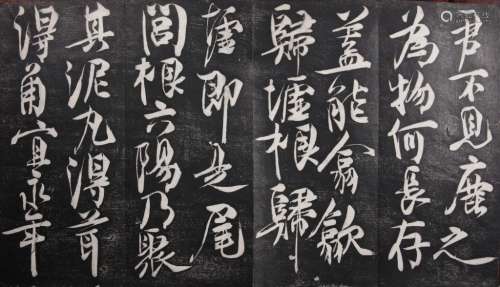 君不見鹿之
為物何長存
蓋能翕歙
歸墟根歸
墟即是尾
閭根六陽乃聚
其泥丸得茸
得角宜永年